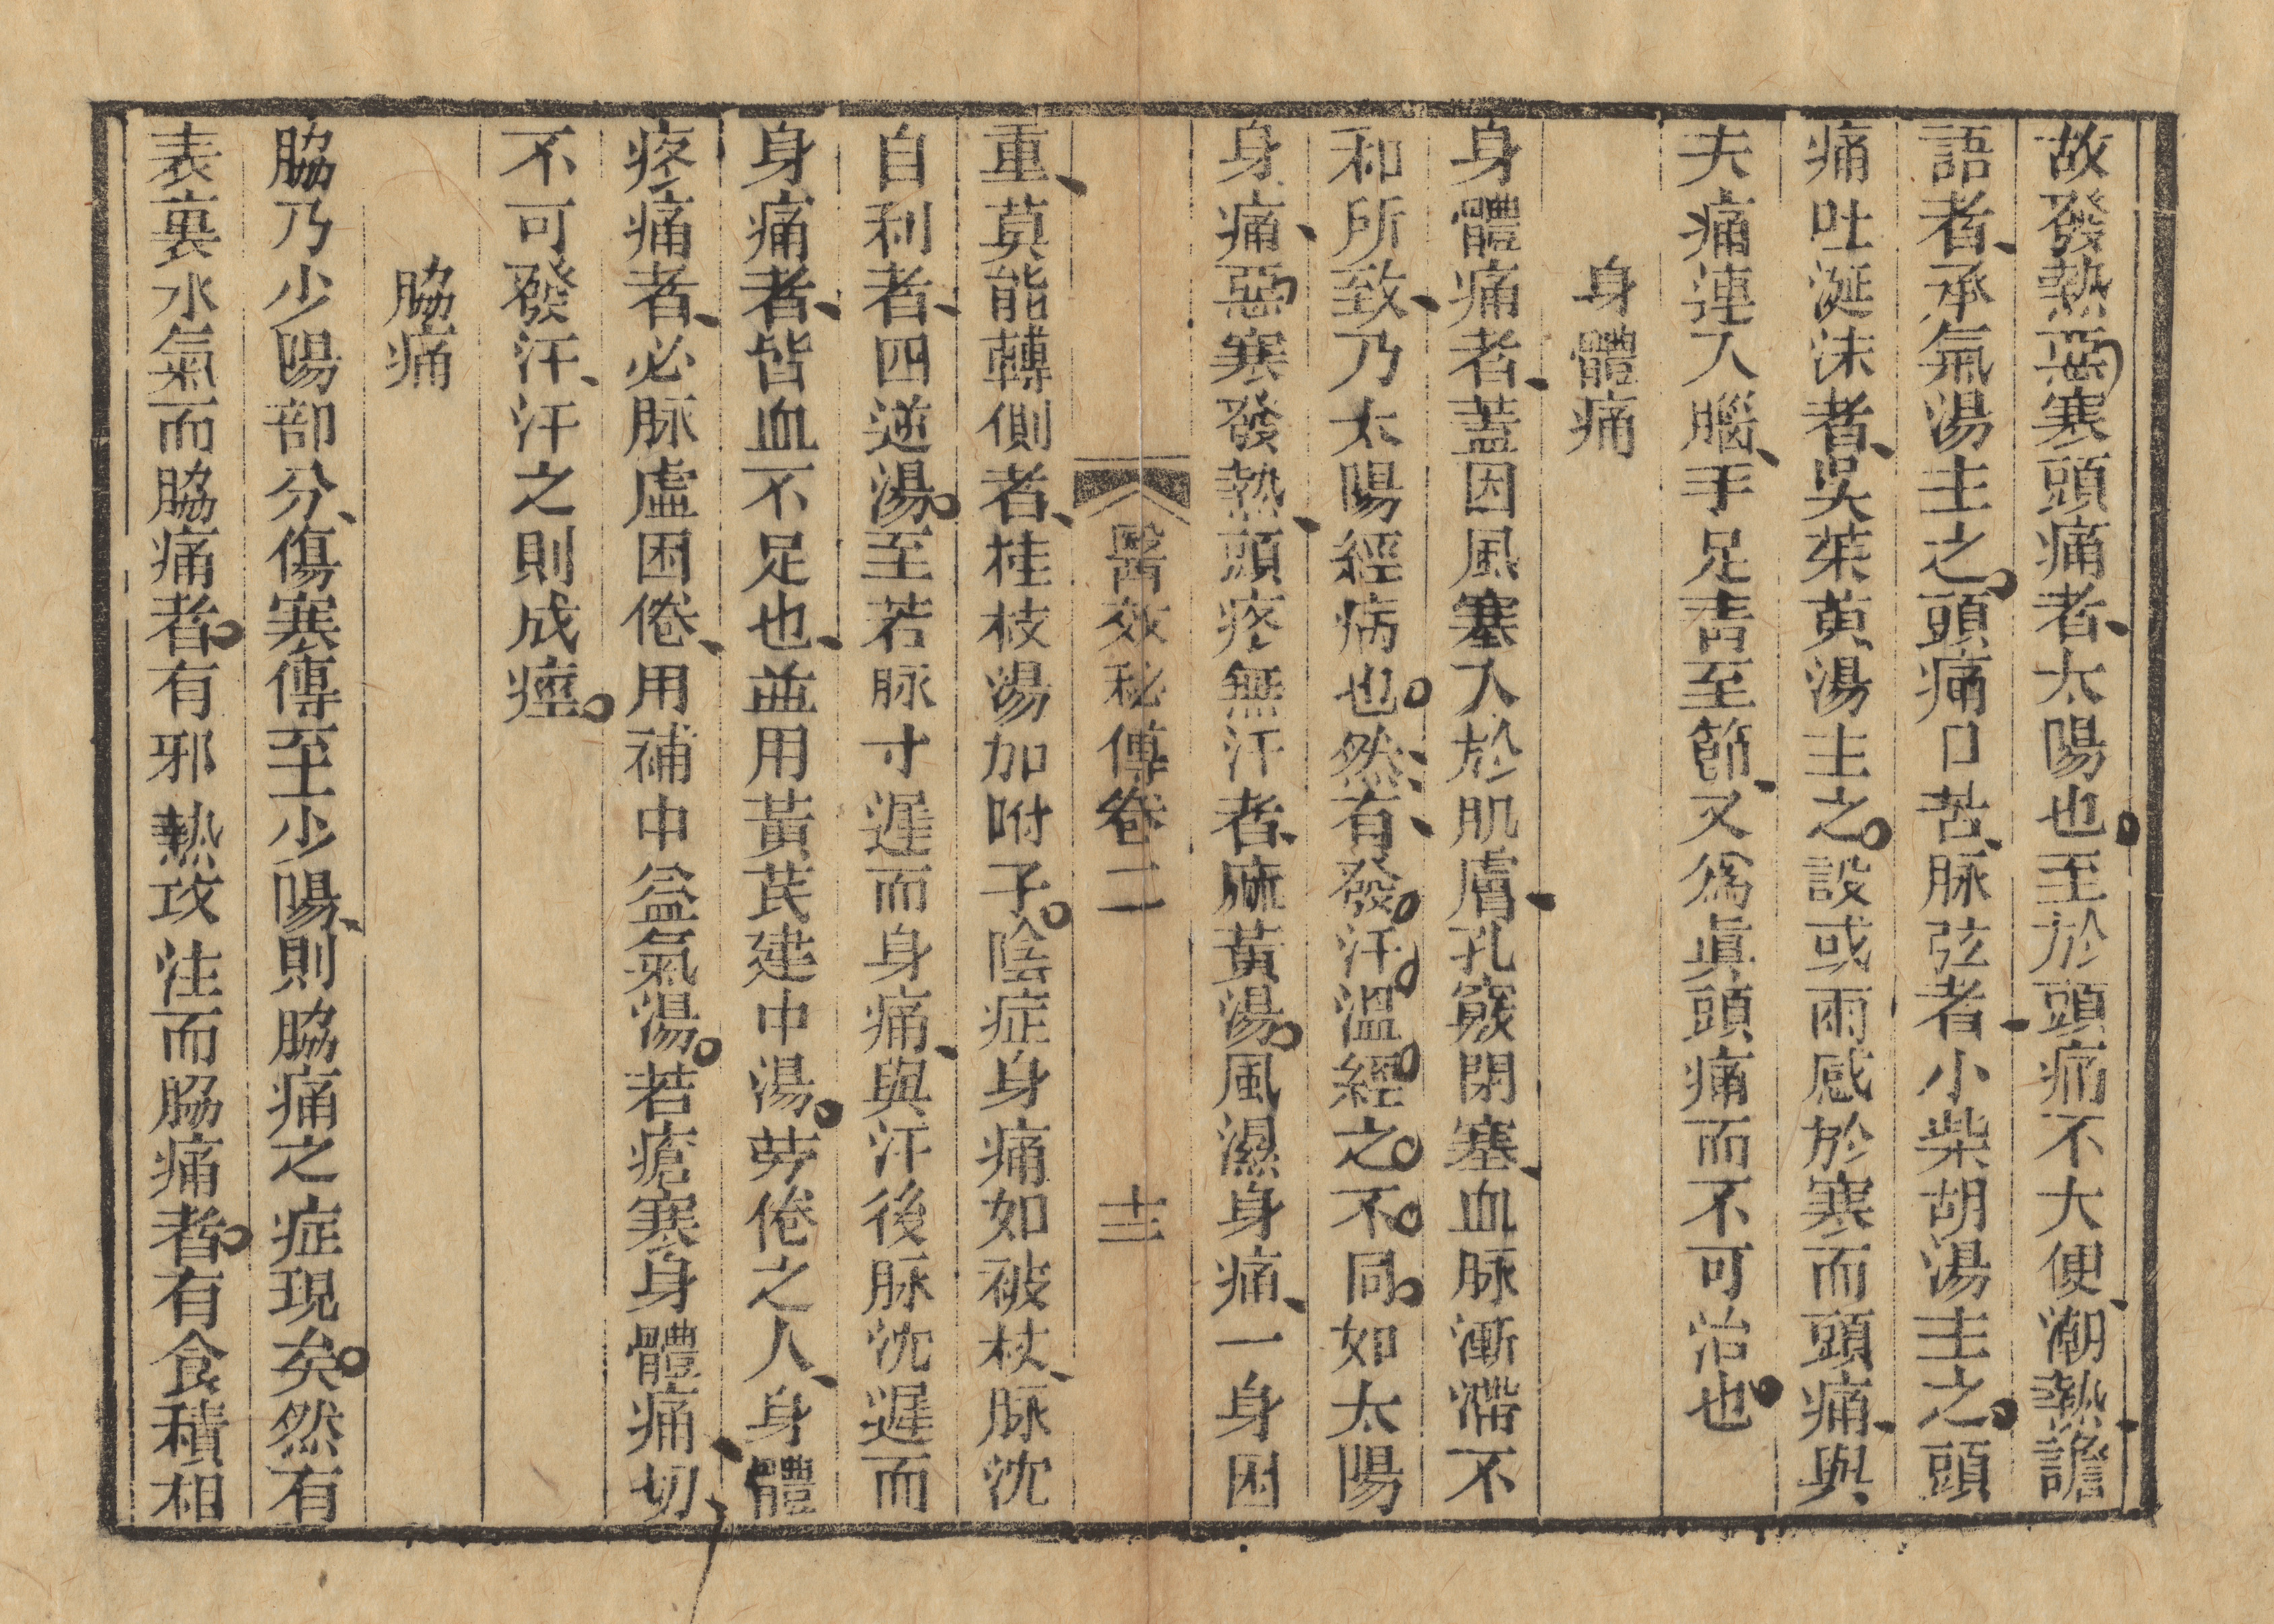 故發熱惡寒頭痛者、太陽也。至於頭痛不大便、潮熱、譫
語者、承氣湯主之。頭痛口苦、脉弦者、小柴胡湯主之。頭
痛吐涎沫者、吳茱萸湯主之。設或雨感於寒而頭痛、與
夫痛連入腦、手足靑至節、又爲眞頭痛而不可治也。
身體痛
身體痛者、蓋因風寒入於肌膚、孔竅閉塞、血脉漸滯不
和所致、乃太陽經病也。然、有、發。汗。溫。經。之。不。同。如太陽
身痛、惡寒發熱、頭疼無汗者、麻黃湯。風濕身痛、一身困
醫效秘傳卷二 十三
重、莫能轉側者、桂枝湯加附子。陰症身痛如被杖、脉沈
自利者、四逆湯。至若脉寸遲而身痛、與汗後脉沈遲而
身痛者、皆血不足也、並用黃芪建中湯。勞倦之人、身體
疼痛者、必脉虛困倦、用補中益氣湯。若瘡寒身體痛切、
不可發汗、汗之則成痙。
脇痛
脇乃少陽部分、傷寒傳至少陽、則脇痛之症現矣。然有
表裏水氣而脇痛者。有邪熱攻注而脇痛者。有食積相